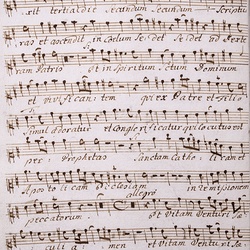 exit tertia die secundum secundum Scriptu
ras et ascendit in coelum sedet sedet ad dexte
ram Patris et in Spiritum Setum Dominum
et vivificantem qui ex Patre et Filio
simul adoratur et conglorificatur qui locutus est
per Prophetas Sanctam Catholicam et
Apostolicam Ecclesiam in remissionem
allegro
peccatorum et Vitam Venturi sae
culi amen et Vitam Venturi